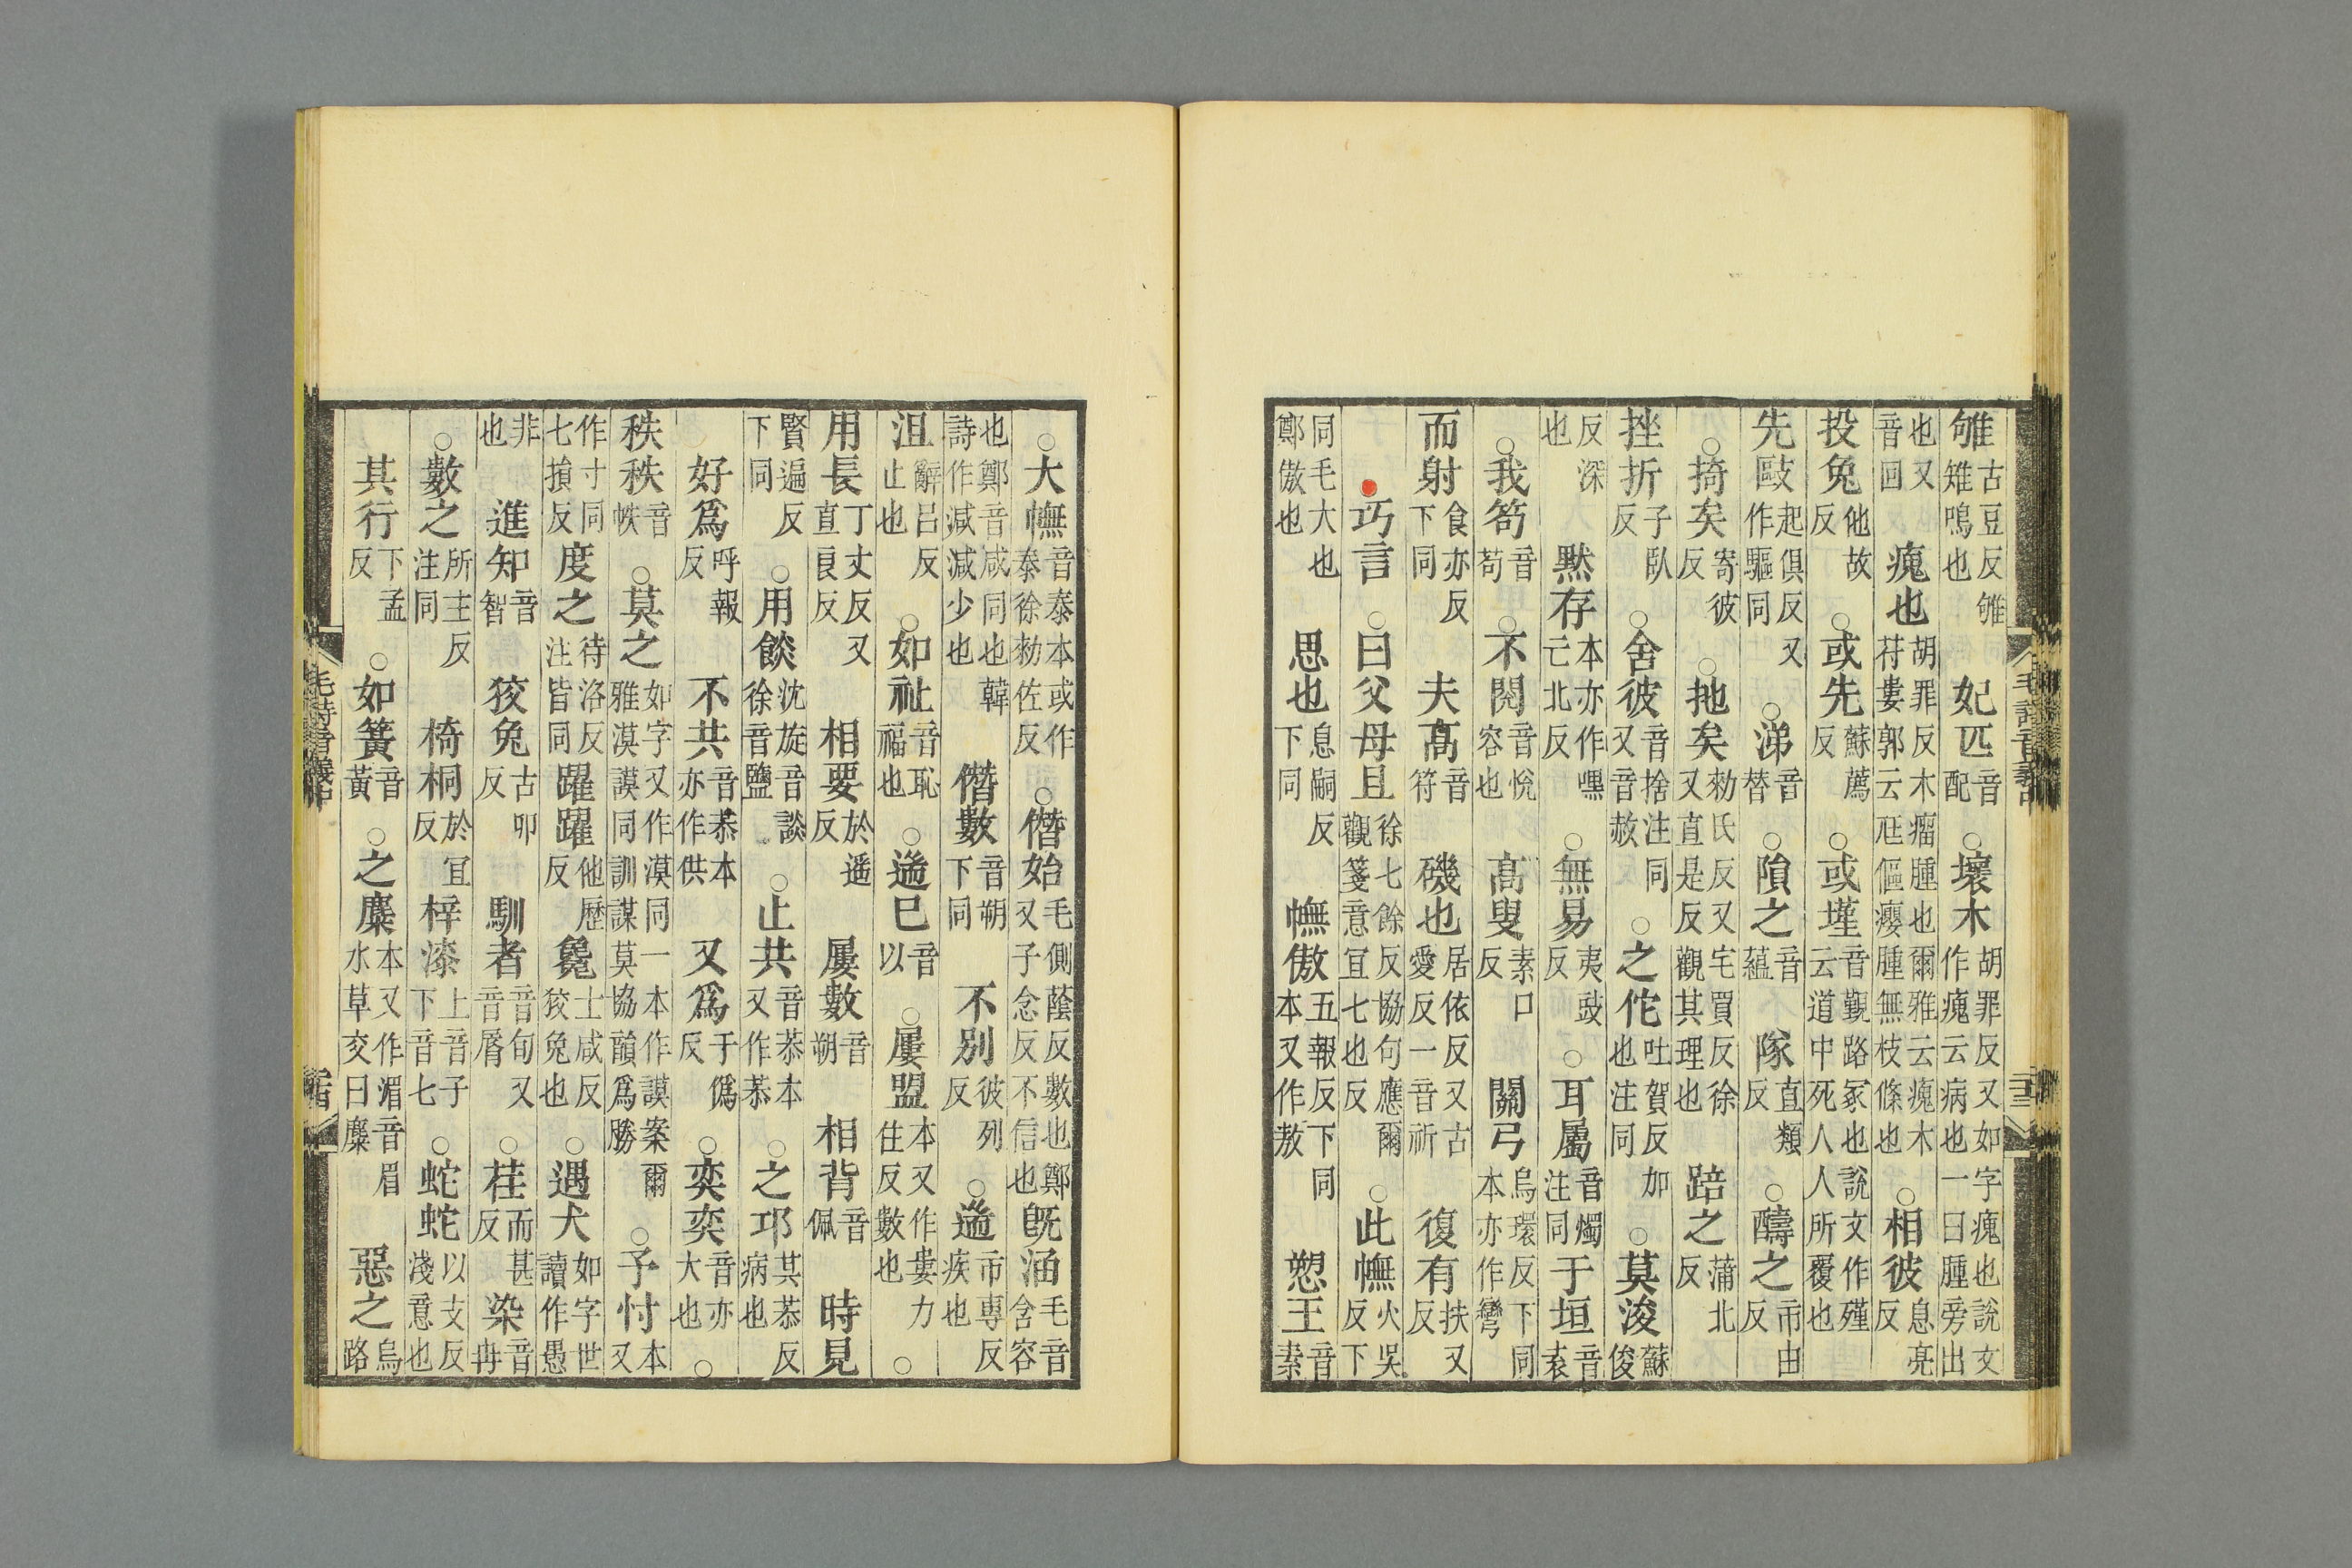 雊古豆反雊雉鳴也妃匹音配○壞木胡罪反又如字瘣也說文作瘣云病也一曰腫旁出
也又音回瘣也胡罪反木瘤腫也爾雅云瘣木苻婁郭云尫傴癭腫無枝條也○相彼息亮反
投兔他故反○或先蘇薦反○或墐音覲路冢也說文作殣云道中死人人所覆也
先敺起俱反又作驅同○涕音替○隕之音蘊隊直類反○醻之市由反
○掎矣寄彼反○扡矣勑氏反又宅買反徐又直是反觀其理也踣之蒲北反
挫折子臥反○舍彼音捨注同又音赦○之佗吐賀反加也注同○莫浚蘇俊
反深也默存本亦作嘿亡北反○無易夷豉反○耳屬音燭注同于垣音袁
○我笱音苟○不閱音悅容也高叟素口反關弓烏環反下同本亦作彎
而射食亦反下同夫高音符磯也居依反又古愛反一音祈復有扶又反
巧言○曰父母且徐七餘反協句應爾觀箋意宜七也反○此幠火吳反下
同毛大也鄭傲也思也息嗣反下同幠傲五報反下同本又作敖愬王音素
○大幠音泰本或作泰徐勑佐反○僭始毛側蔭反數也鄭又子念反不信也既涵毛音含容
也鄭音咸同也韓詩作減減少也僭數音朔下同不別彼列反○遄市專反疾也
沮辭呂反止也○如祉音恥福也○遄已音以○屢盟本又作婁力住反數也○
用長丁丈反又直良反相要於遥反屢數音朔相背音佩時見
賢遍反下同○用餤沈旋音談徐音鹽○止共音恭本又作恭○之邛其恭反病也
好爲呼報反不共音恭本亦作供又爲于僞反○奕奕音亦大也○
秩秩音帙○莫之如字又作漠同一本作謨案爾雅漠謨同訓謀莫協韻爲勝○予忖本又
作寸同七損反度之待洛反注皆同躍躍他歷反毚士咸反狡兔也○遇犬如字世讀作愚
非也進知音智狡兔古卯反馴者音旬又音脣○荏而甚反染音冉
○數之所主反注同椅桐於宜反梓漆上音子下音七○蛇蛇以支反淺意也
其行下孟反○如簧音黃○之麋本又作湄音眉水草交曰麋惡之烏路